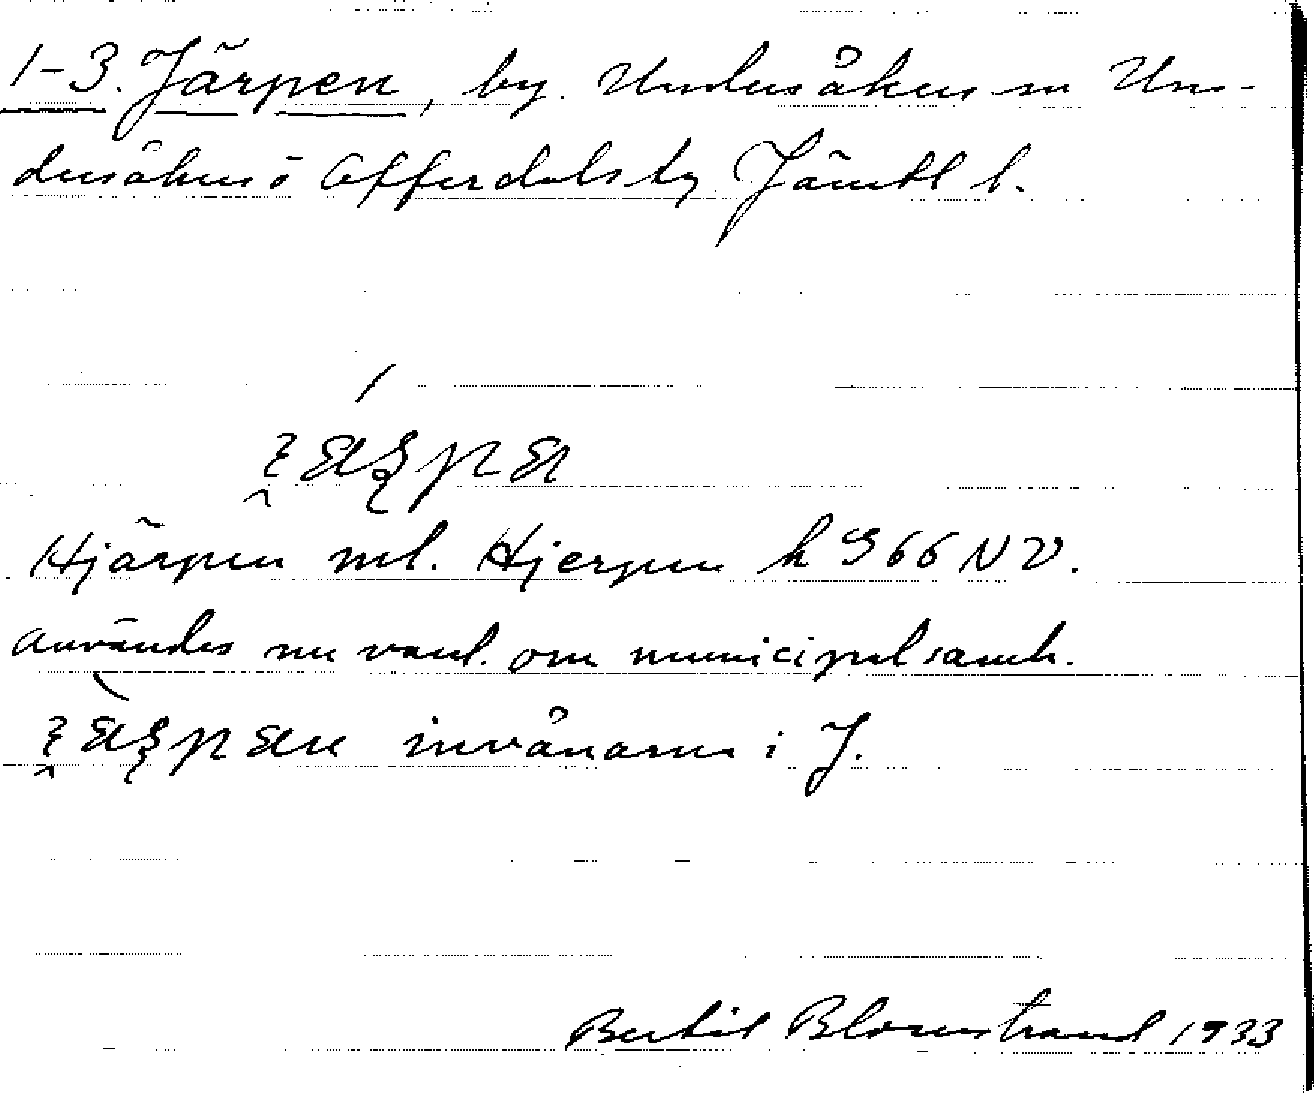 1-3. Järpen, by. Undersåkers sn Un-
dersåkers o Offerdals tg Jämtl l.
Hjärpen ml. Hjerpen k S 66 NV.
användes nu vanl. om municipalsamh.
invånarna i J.
Bertil Blomstrand 1933